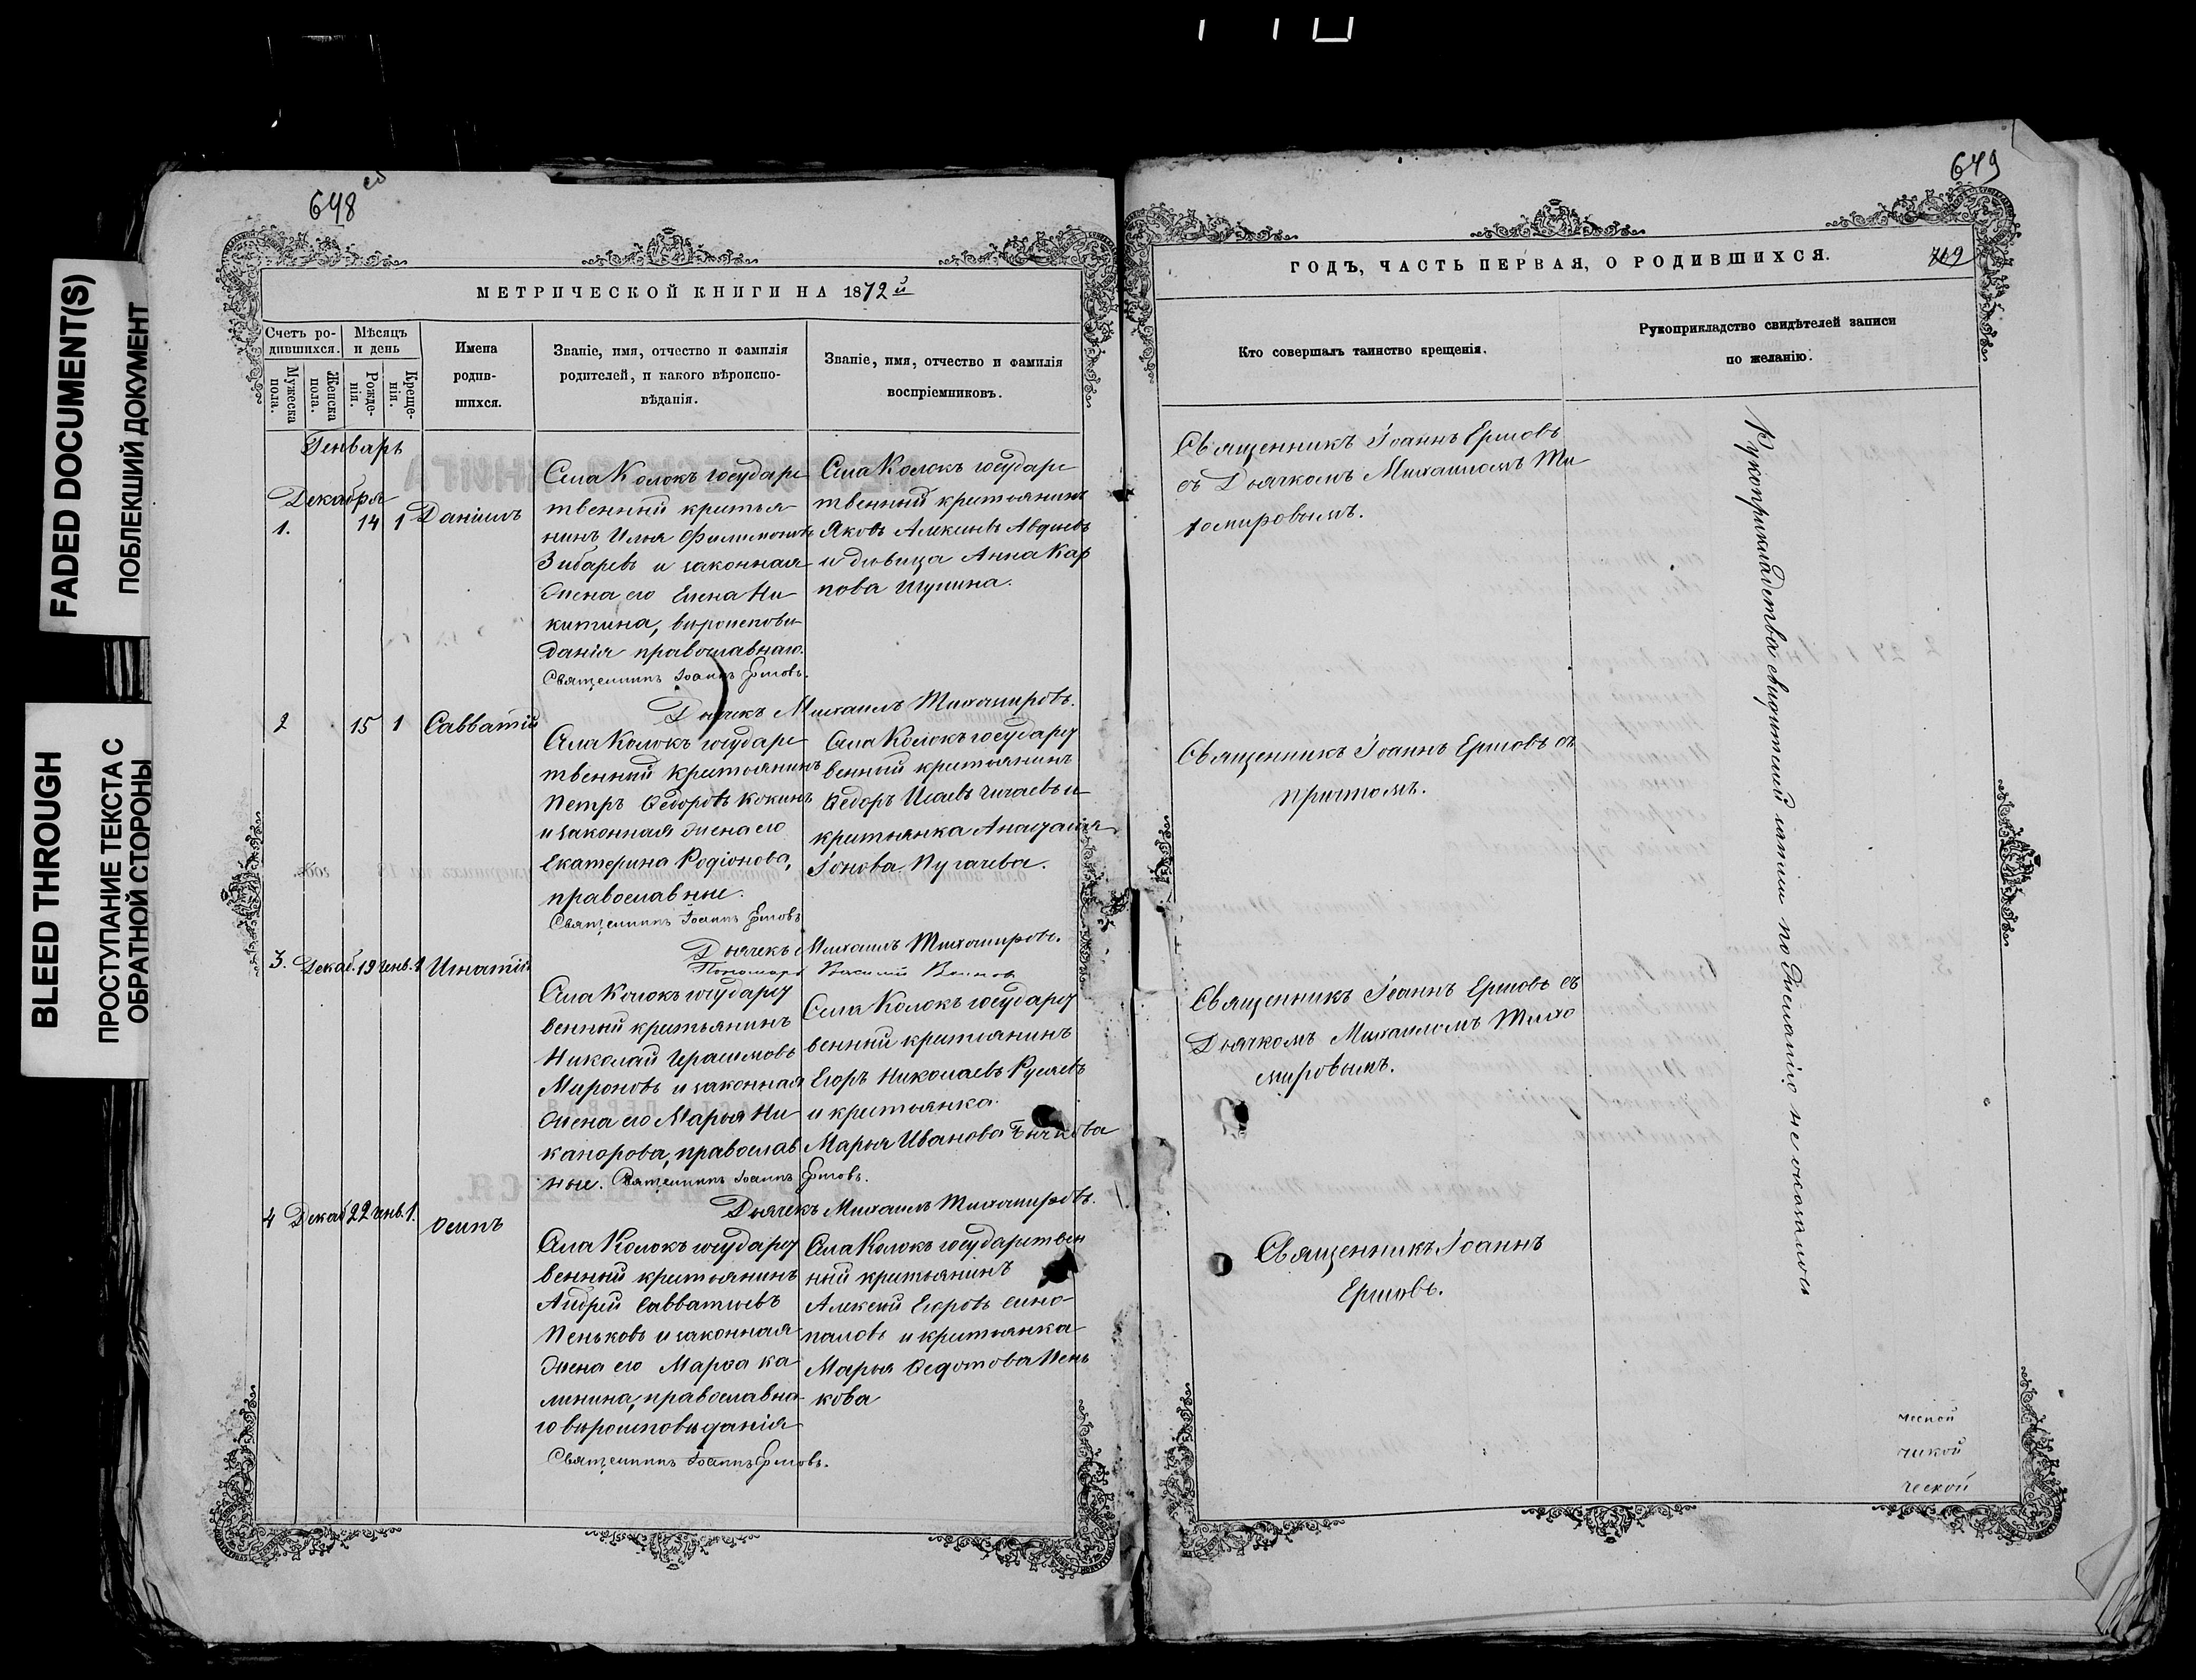 FADED DOCUMENT(S)
ПОБЛЕКШИЙ ДОКУМЕНТ
BLEED THROUGH
ПРОСТУПАНИЕ ТЕКСТА С
ОБРАТНОЙ СТОРОНЫ
648
МЕТРИЧЕСКОЙ КНИГИ НА 1872й
Счетъ ро-
дившихся.
Мужеска
пола.
Женска
пола.
Мѣсяцъ
и день
Рожде-
нія.
Креще-
нія.
Имена
родив-
шихся.
Званіе, имя, отчество и фамилія
родителей, и какого вѣроиспо-
вѣданія.
Званіе, имя, отчество и фамилія
воспріемниковъ.
Генварь
Декабря
1. 14 1 Даніилъ
Села Колокъ государс
твенный крестья
нинъ Илья Филимоновъ
Зибаревъ и законная
жена его Елена Ни
китина, вѣроисповѣ
данія православнаго.
Священникъ Іоаннъ Ершовъ.
Дьячекъ Михаилъ Тихомировъ.
Села Колокъ государс
твенный крестьянинъ
Яковъ Алексѣевъ Авдѣевъ
и дѣвица Анна Кар
пова
2 15 1 Савватій
Села Колокъ государс
твенный крестьянинъ
Петръ Ѳедоровъ Кокинъ
и законная жена его
Екатерина Родіонова,
православные.
Священникъ Іоаннъ Ершовъ
Дьячекъ Михаилъ Тихомировъ.
Пономарь Василий
Села Колокъ государст
венный крестьянинъ
Ѳедоръ Исаевъ Чичаевъ и
крестьянка Анастасія
Іонова Пугачева.
3. Декаб. 19 Генв. 1 Игнатій
Села Колокъ государст
венный крестьянинъ
Николай Герасимовъ
Мироновъ и законная
жена его Марья Ни
канорова, православ
ные. Священникъ Іоаннъ Ершовъ.
Дьячекъ Михаилъ Тихомировъ.
Села Колокъ государст
венный крестьянинъ
Егоръ Николаевъ Русяевъ
и крестьянка
Марья Иванова Бычкова
4 Декаб 22 Генв. 1. Осипъ
Села Колокъ государст
венный крестьянинъ
Андрей Савватѣевъ
Пеньковъ и законная
жена его Марѳа Ка
линина, православна
го вѣроисповѣданія
Священникъ Іоаннъ Ершовъ.
Села Колокъ государствен
ный крестьянинъ
Алексѣй Егоровъ Сино-
паловъ и крестьянка
Марья Ѳедотова Пень
кова
649
ГОДЪ, ЧАСТЬ ПЕРВАЯ, О РОДИВШИХСЯ.
Кто совершалъ таинство крещенія.
Рукоприкладство свидѣтелей записи
по желанію.
Священникъ Іоаннъ Ершовъ
съ Дьячкомъ Михаиломъ Ти
хомировымъ.
Священникъ Іоаннъ Ершовъ съ
причтомъ.
Священникъ Іоаннъ Ершовъ съ
Дьячкомъ Михаиломъ Тихо
мировымъ.
Священникъ Іоаннъ
Ершовъ.
Рукоприкладства свидѣтелей записи по желанію не оказалось
ческой